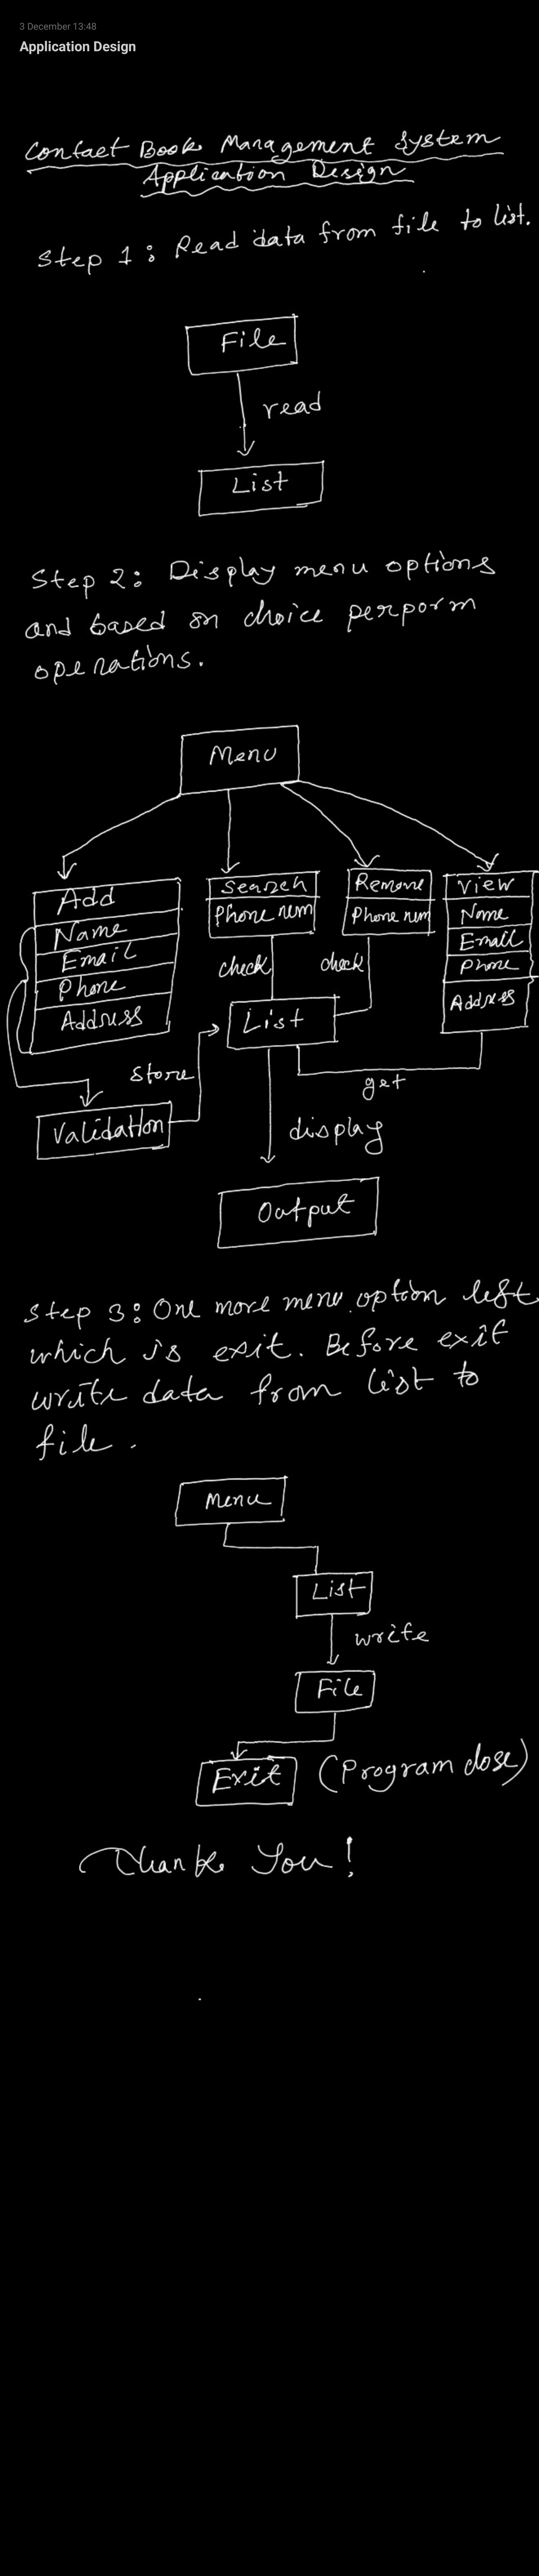 3 December 13:48
Application Design
Contact Book Management System
Application Design
Step 1: Read data from file to list.
File
read
List
Step 2: Display menu options
and based on choice perporm
operations.
Menu
Add
Name
Email
Phone
Address
Search
Phone num
Remove
Phone num
View
Name
Email
Phone
Address
check
check
List
Store
get
Validation
display
Output
Step 3: One more menu option left
which is exit. Before exit
write data from list to
file.
Menu
List
write
File
Exit (Program close)
Thank You!